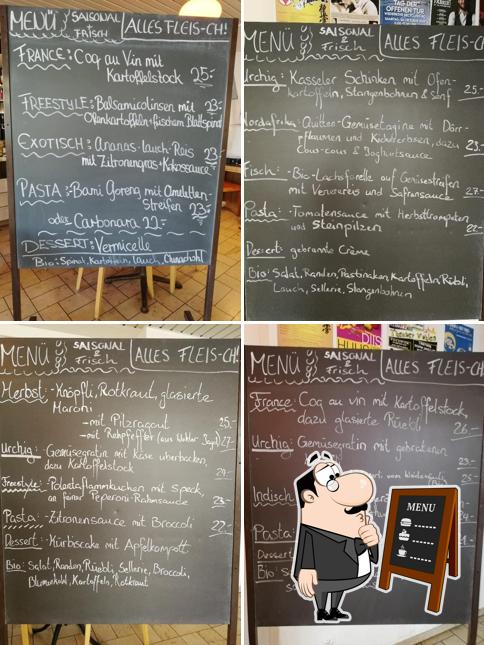 MENÜ SAISONAL & FRISCH ALLES FLEIS-CH!
FRANCE: Coq au Vin mit
Kartoffelstock 25.-
FREESTYLE: Balsamicolinsen mit 23.-
Ofenkartoffeln + frischem Blattspinat
EXOTISCH: Ananas-Lauch-Reis 23.-
mit Zitronengras + Kokossauce
PASTA: Bami Goreng mit Omeletten-
streifen 23.-
oder Carbonara 22.-
DESSERT: Vermicelle
Bio: Spinat, Kartoffeln, Lauch
MENÜ SAISONAL & Frisch ALLES FLEIS-CH
Urchig: Kasseler Schinken mit Ofen-
kartoffeln, Stangenbohnen & Senf 25.-
Nordafrika: Quitten-Gemüsetagine mit Dörr-
pflaumen und Kichererbsen, dazu
Cous-cous & Joghurtsauce 23.-
Fisch: Bio-Lachsforelle auf Gemüsestreifen
mit Venusreis und Safransauce 27.-
Pasta: Tomatensauce mit Herbsttrompeten
und Steinpilzen 22.-
Dessert: gebrannte Crème
Bio: Salat, Randen, Pastinaken, Kartoffeln, Rüebli,
Lauch, Sellerie, Stangenbohnen
MENÜ SAISONAL & Frisch ALLES FLEIS-CH!
Herbst: Knöpfli, Rotkraut, glasierte
Maroni
-mit Pilzragout 25.-
-mit Rehpfeffer (aus Jagd) 27.-
Urchig: Gemüsegratin mit Käse überbacken,
dazu Kartoffelstock 24.-
Freestyle: Polentaflammkuchen mit Speck,
an feiner Peperoni-Rahmsauce 23.-
Pasta: Zitronensauce mit Broccoli 22.-
Dessert: Kürbiscake mit Apfelkompott
Bio: Salat, Randen, Rüebli, Sellerie, Broccoli,
Blumenkohl, Kartoffeln, Rotkraut
MENÜ SAISONAL & Frisch ALLES FLEIS-CH
France: Coq au Vin mit Kartoffelstock,
dazu glasierte Rüebli 26.-
Urchig: Gemüsegratin mit gebratenen
23.-
Indisch
Pasta:
Dessert
Bio: S
MENU